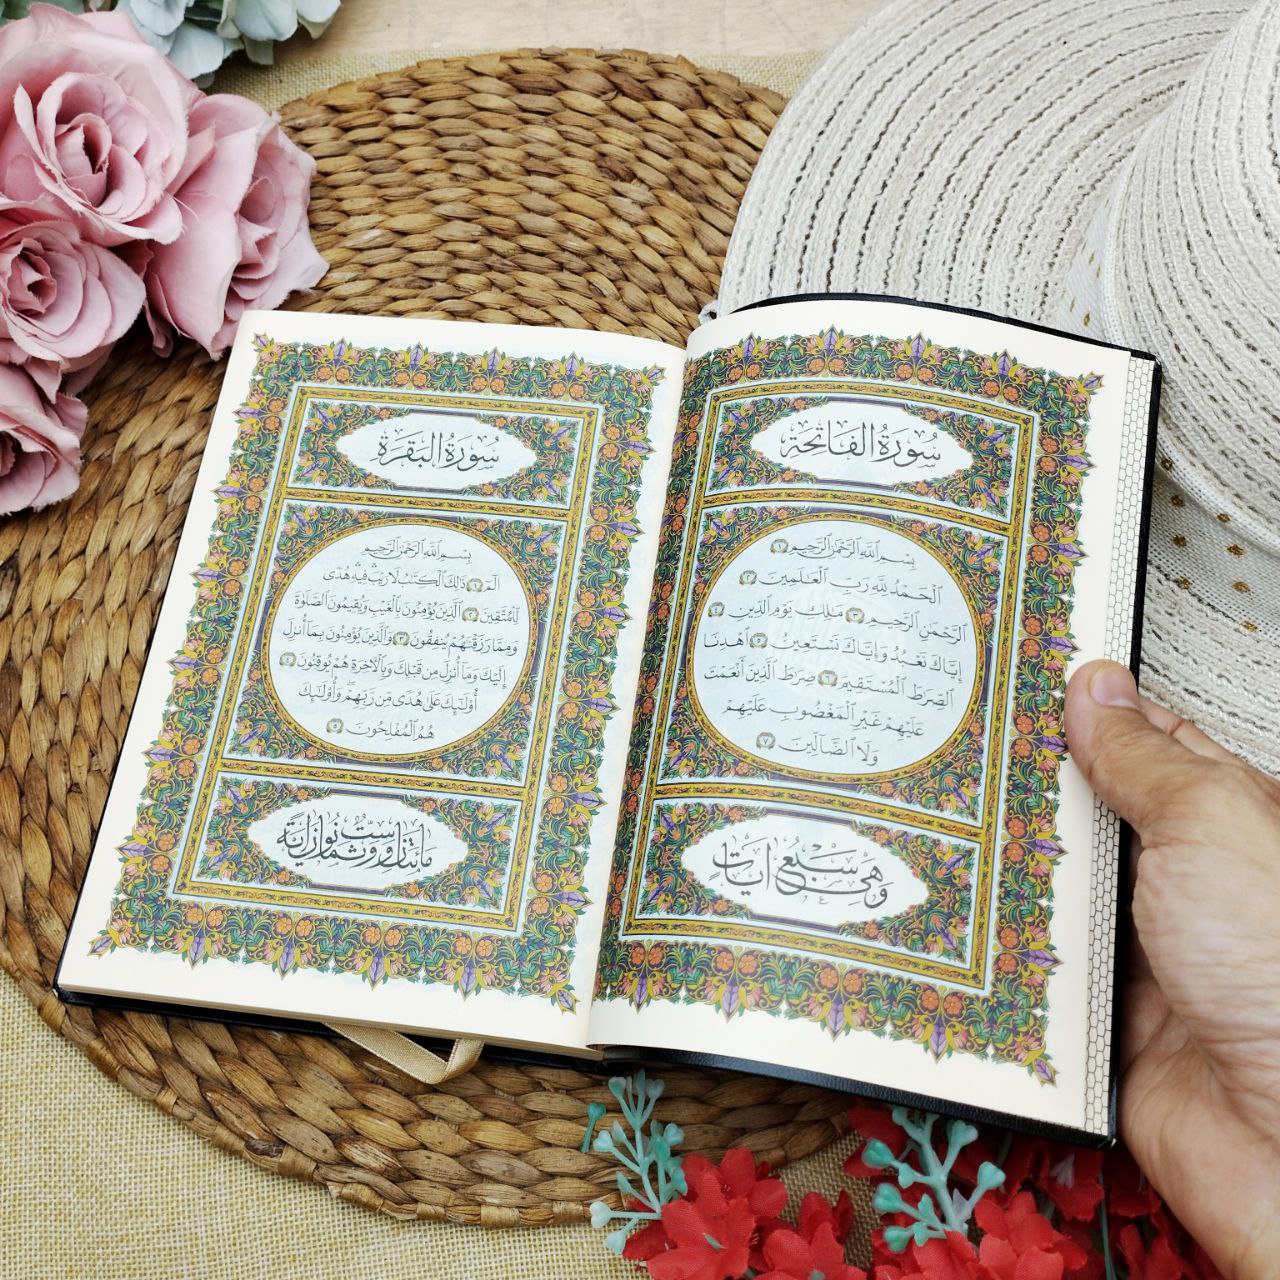 سُورَةُ الْفَاتِحَةِ
بِسْمِ اللَّهِ الرَّحْمَٰنِ الرَّحِيمِ ١
الْحَمْدُ لِلَّهِ رَبِّ الْعَالَمِينَ ٢
الرَّحْمَٰنِ الرَّحِيمِ ٣ مَالِكِ يَوْمِ الدِّينِ ٤
إِيَّاكَ نَعْبُدُ وَإِيَّاكَ نَسْتَعِينُ ٥ اهْدِنَا
الصِّرَاطَ الْمُسْتَقِيمَ ٦ صِرَاطَ الَّذِينَ أَنْعَمْتَ
عَلَيْهِمْ غَيْرِ الْمَغْضُوبِ عَلَيْهِمْ
وَلَا الضَّالِّينَ ٧
وَهِيَ سَبْعُ آيَاتٍ
سُورَةُ الْبَقَرَةِ
بِسْمِ اللَّهِ الرَّحْمَٰنِ الرَّحِيمِ
الم ١ ذَٰلِكَ الْكِتَابُ لَا رَيْبَ فِيهِ هُدًى
لِّلْمُتَّقِينَ ٢ الَّذِينَ يُؤْمِنُونَ بِالْغَيْبِ وَيُقِيمُونَ الصَّلَاةَ
وَمِمَّا رَزَقْنَاهُمْ يُنفِقُونَ ٣ وَالَّذِينَ يُؤْمِنُونَ بِمَا أُنزِلَ
إِلَيْكَ وَمَا أُنزِلَ مِن قَبْلِكَ وَبِالْآخِرَةِ هُمْ يُوقِنُونَ ٤
أُولَٰئِكَ عَلَىٰ هُدًى مِّن رَّبِّهِمْ وَأُولَٰئِكَ
هُمُ الْمُفْلِحُونَ ٥
مائتان وست وثمانون آية